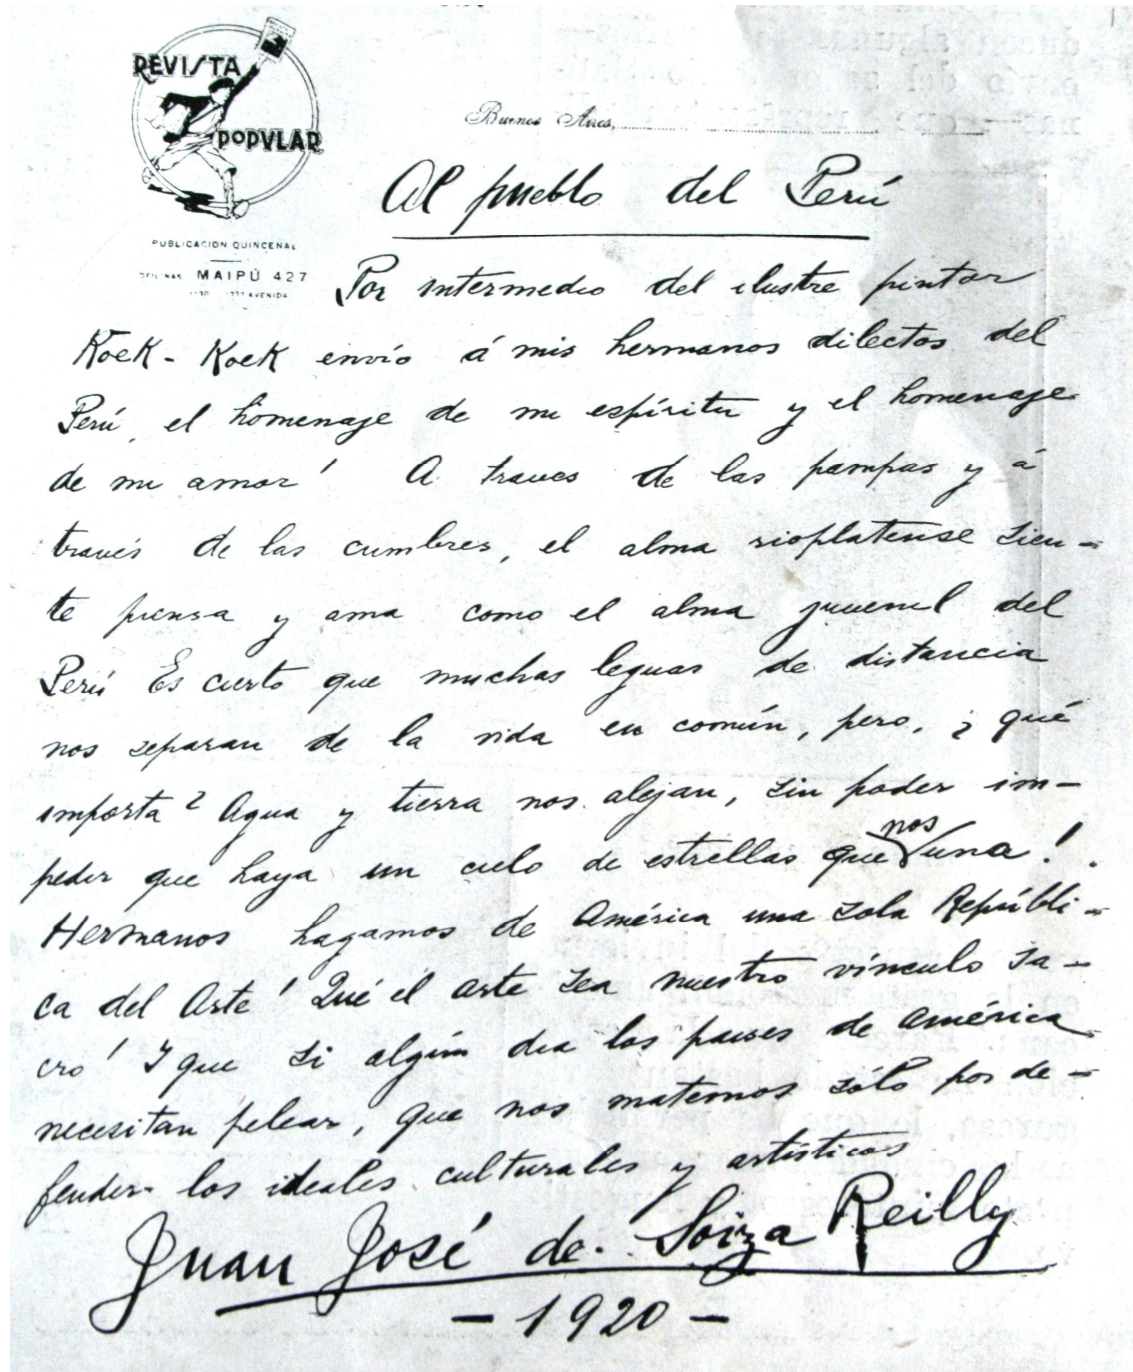 REVISTA
POPVLAR
PUBLICACION QUINCENAL
MAIPÚ 427
AVENIDA
Buenos Aires,
Al pueblo del Perú
Por intermedio del ilustre pintor
Koek-Koek envío á mis hermanos dilectos del
Perú, el homenaje de mi espíritu y el homenaje
de mi amor! A traves de las pampas y á
través de las cumbres, el alma rioplatense sien-
te piensa y ama como el alma juvenil del
Perú Es cierto que muchas leguas de distancia
nos separan de la vida en común, pero, ¿qué
importa? Agua y tierra nos alejan, sin poder im-
pedir que haya un cielo de estrellas que nos una!
Hermanos hagamos de América una sola Repúbli-
ca del Arte! Qué el arte sea nuestro vínculo sa-
cro! I que si algún dia los paises de América
necesitan pelear, que nos matemos sólo por de-
fender los ideales culturales y artísticos
Juan José de Soiza Reilly
-1920-